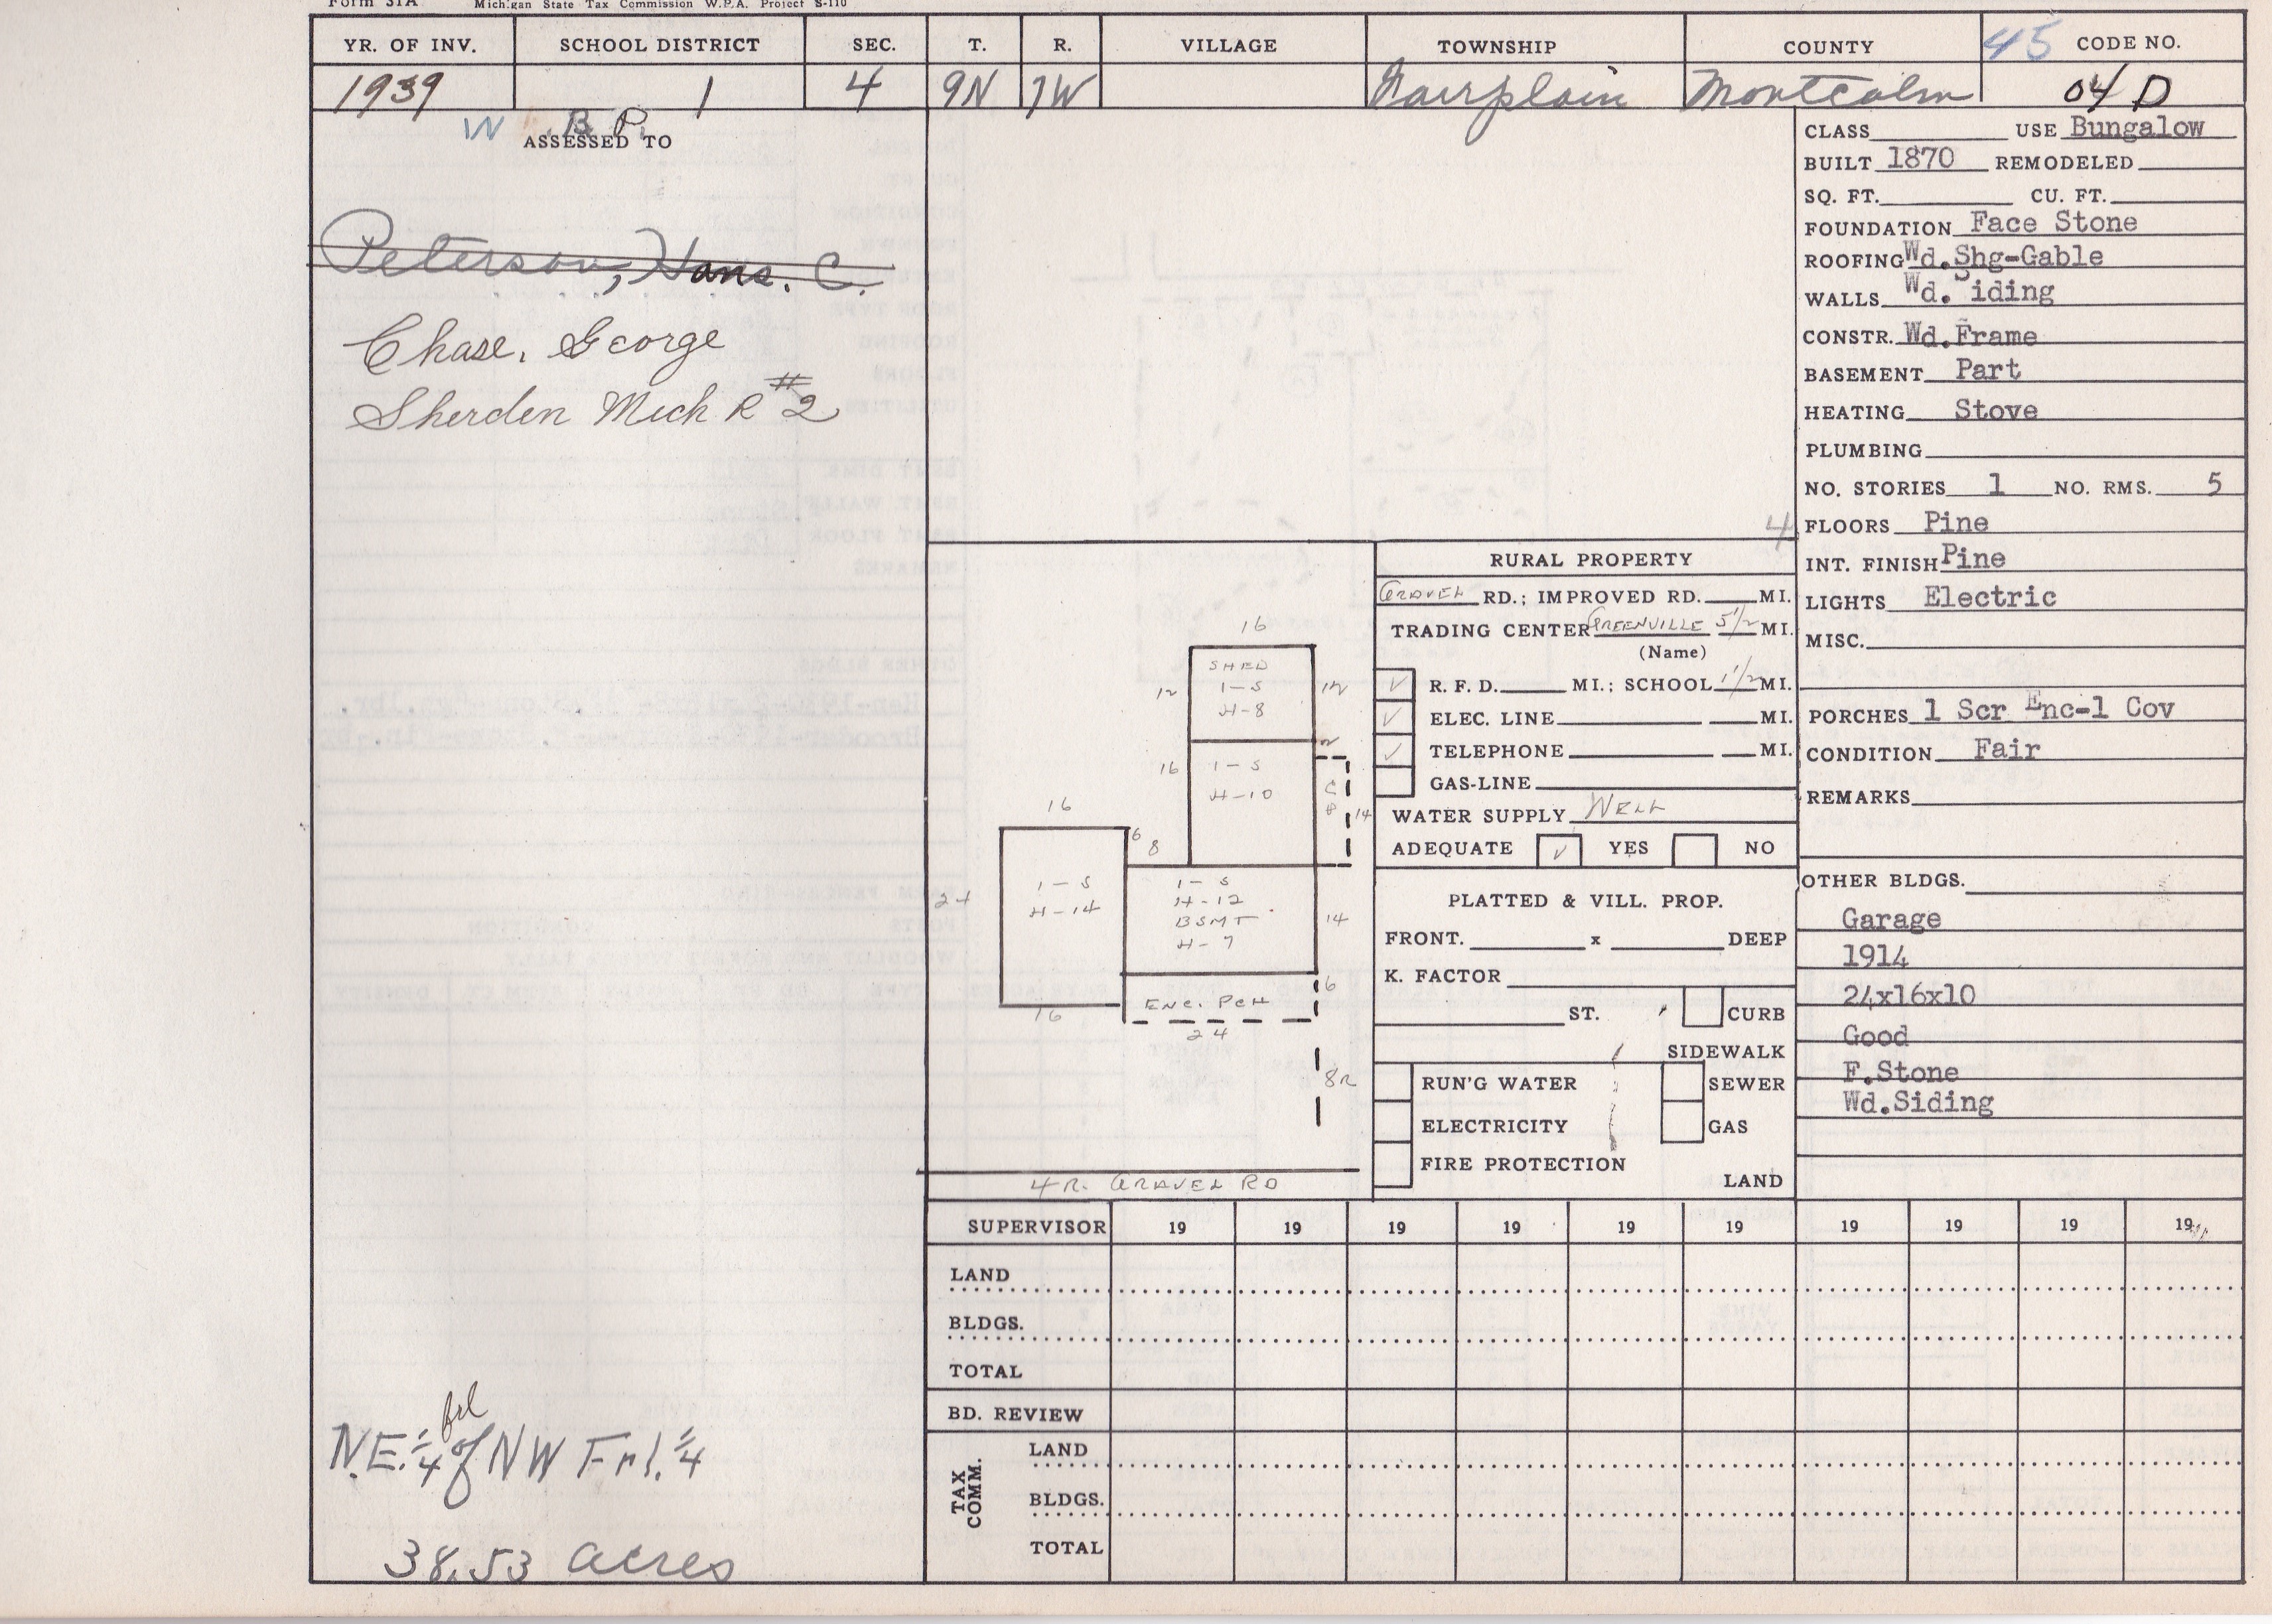 Form 31A Michigan State Tax Commission W.P.A. Project S-110
YR. OF INV. SCHOOL DISTRICT SEC. T. R. VILLAGE TOWNSHIP COUNTY 45 CODE NO.
1939 1 4 9N 7W Fairplain Montcalm 04 D
W B P.
ASSESSED TO
Peterson, Hans. C.
Chase, George
Sherden Mich R #2
N.E. 1/4 frl of NW Frl. 1/4
38.53 acres
CLASS USE Bungalow
BUILT 1870 REMODELED
SQ. FT. CU. FT.
FOUNDATION Face Stone
ROOFING Wd.Shg-Gable
WALLS Wd. Siding
CONSTR. Wd.Frame
BASEMENT Part
HEATING Stove
PLUMBING
NO. STORIES 1 NO. RMS. 5
4
FLOORS Pine
INT. FINISH Pine
LIGHTS Electric
MISC.
PORCHES 1 Scr Enc-1 Cov
CONDITION Fair
REMARKS
OTHER BLDGS.
Garage
1914
24x16x10
Good
F.Stone
Wd.Siding
16
SHED
1-S
H-8
12 12
2
16 1-S
H-10
C
8
14
16
6
8
24
1-S
H-14
1-S
H-12
BSMT
H-7
14
ENC. PCH
6
16
24
8R
4R. GRAVEL RD
RURAL PROPERTY
GRAVEL RD.; IMPROVED RD. MI.
TRADING CENTER GREENVILLE 5 1/2 MI.
(Name)
✓ R. F. D. MI.; SCHOOL 1/2 MI.
✓ ELEC. LINE MI.
✓ TELEPHONE MI.
GAS-LINE
WATER SUPPLY WELL
ADEQUATE ✓ YES NO
PLATTED & VILL. PROP.
FRONT. x DEEP
K. FACTOR
ST. CURB
SIDEWALK
RUN'G WATER SEWER
ELECTRICITY GAS
FIRE PROTECTION
LAND
SUPERVISOR 19 19 19 19 19 19 19 19 19 19
LAND
BLDGS.
TOTAL
BD. REVIEW
TAX COMM.
LAND
BLDGS.
TOTAL